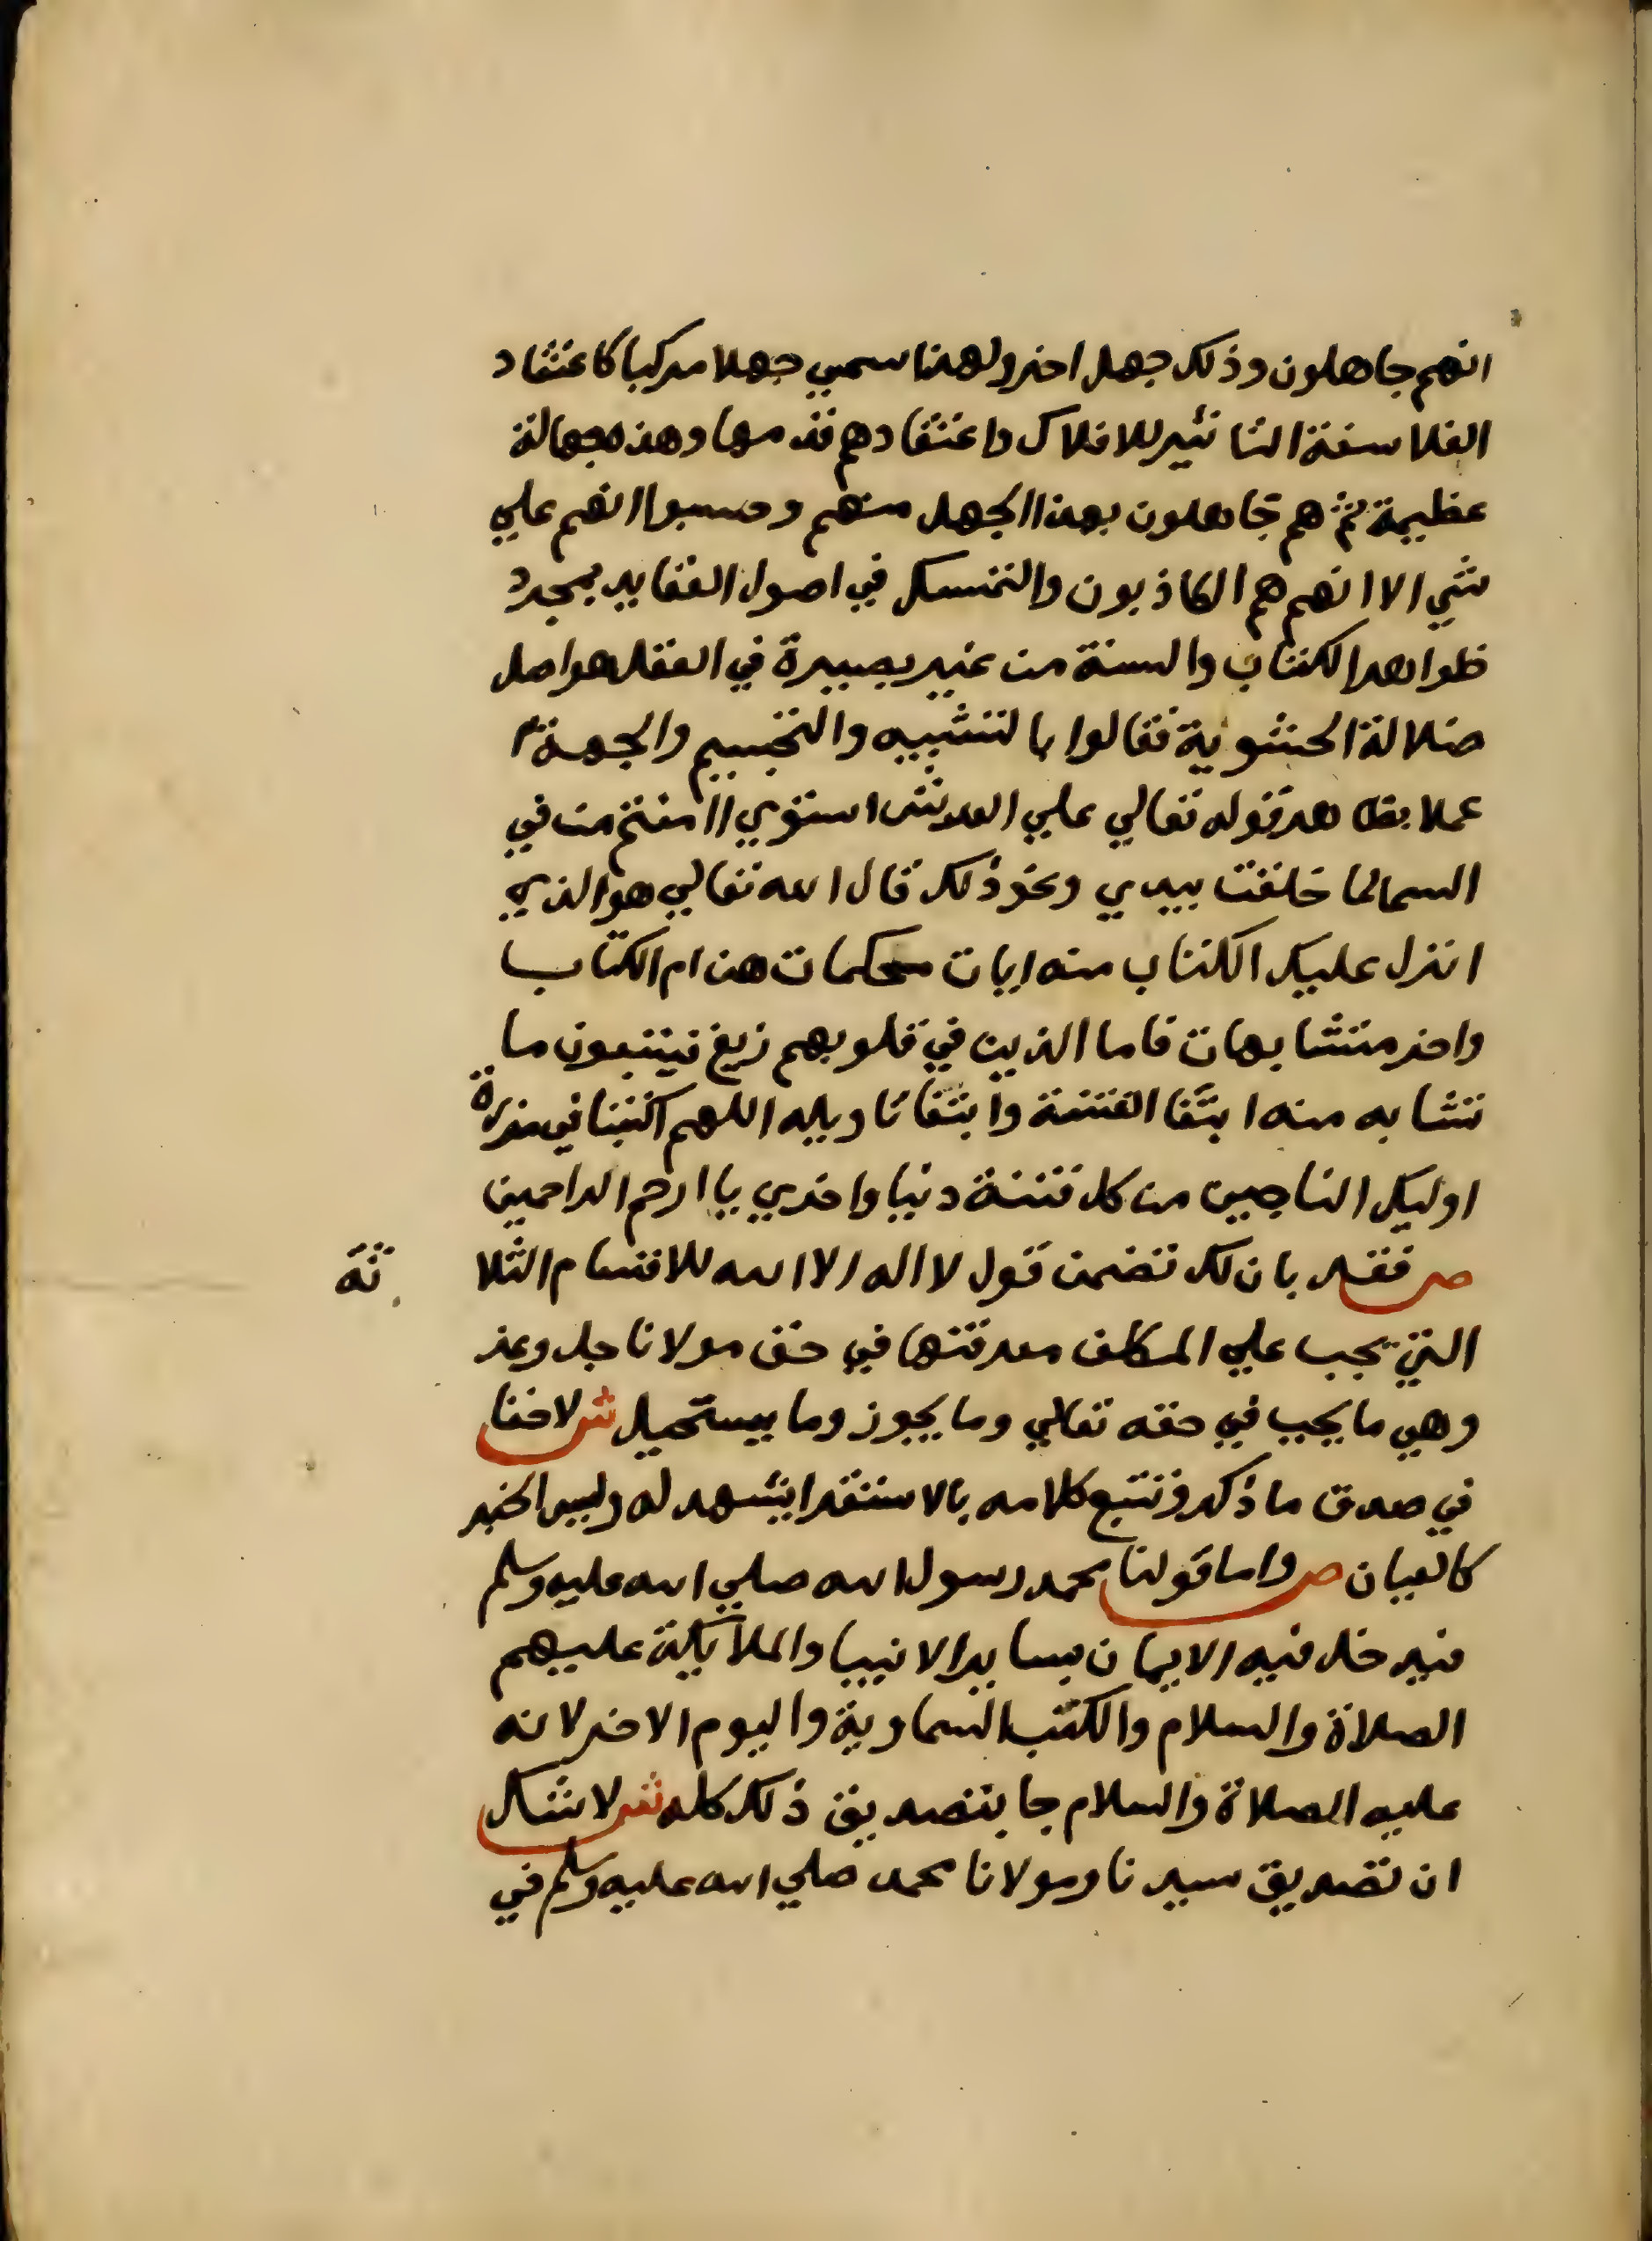 انهم جاهلون وذلك جهل اخر ولهذا سمي جهلا مركبا كاعتقاد
الفلاسفة التاثير للافلاك واعتقادهم قدمها وهذه جهالة
عظيمة ثم هم جاهلون بهذا الجهل منهم وحسبوا انهم علي
شي الا انهم هم الكاذبون والتمسك في اصول العقايد بمجرد
ظواهر الكتاب والسنة من غير بصيرة في العقل هو اصل
ضلالة الحشوية فقالوا بالتشبيه والتجسيم والجهة
عملا بظاهر قوله تعالي علي العرش استوي اامنتم من في
السما لما خلقت بيدي ونحو ذلك قال الله تعالي هو الذي
انزل عليك الكتاب منه ايات محكمات هن ام الكتاب
واخر متشابهات فاما الذين في قلوبهم زيغ فيتبعون ما
تشابه منه ابتغا الفتنة وابتغا تاويله اللهم اكتبنا في زمرة
اوليك الناجين من كل فتنة دنيا واخري يا ارحم الراحمين
ص فقد بان لك تضمن قول لا اله الا الله للاقسام الثلا ثة
التي يجب علي المكلف معرفتها في حق مولانا جل وعز
وهي ما يجب في حقه تعالي وما يجوز وما يستحيل ش لا خفا
في صدق ما ذكر وتتبع كلامه بالاستقرا يشهد له وليس الخبر
كالعيان ص واما قولنا محمد رسول الله صلي الله عليه وسلم
فيدخل فيه الايمان بساير الانبيا والملايكة عليهم
الصلاة والسلام والكتب السماوية واليوم الاخر لانه
عليه الصلاة والسلام جا بتصديق ذلك كله ش لا شك
ان تصديق سيدنا ومولانا محمد صلي الله عليه وسلم في